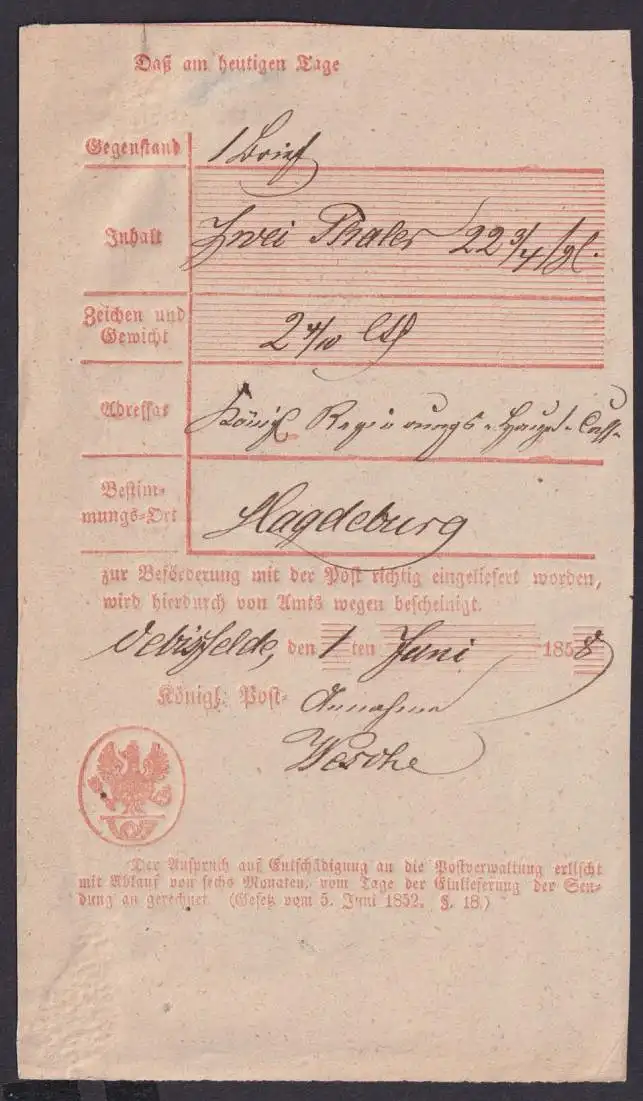 Daß am heutigen Tage
Gegenstand 1 Brief
Inhalt Zwei Thaler 22 3/4 /gl.
Zeichen und
Gewicht 2 4/10 Lth
Adressat Königl Regierungs-Haupt-Casse
Bestim-
mungs-Ort Magdeburg
zur Beförderung mit der Post richtig eingeliefert worden,
wird hierdurch von Amts wegen bescheinigt.
Oebisfelde, den 1 ten Juni 1858
Königl. Post- Annahme
Wesche
Der Anspruch auf Entschädigung an die Postverwaltung erlischt
mit Ablauf von sechs Monaten, vom Tage der Einlieferung der Sen-
dung an gerechnet. (Gesetz vom 5. Juni 1852. §. 18.)